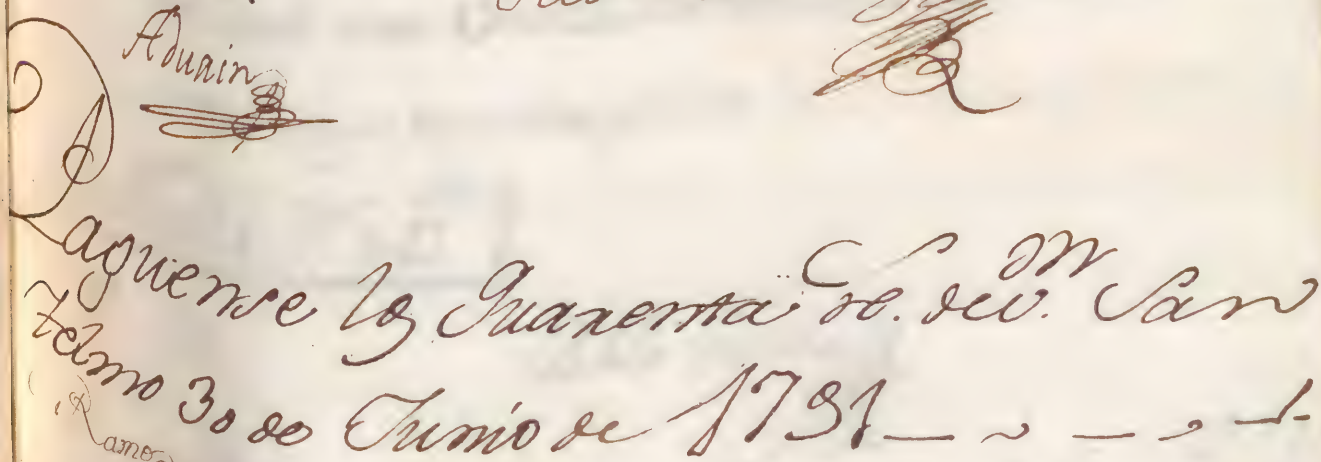 Aduain
Paguense los Quarenta rs. de vn. San
Telmo 30 de Junio de 1791
Ramos